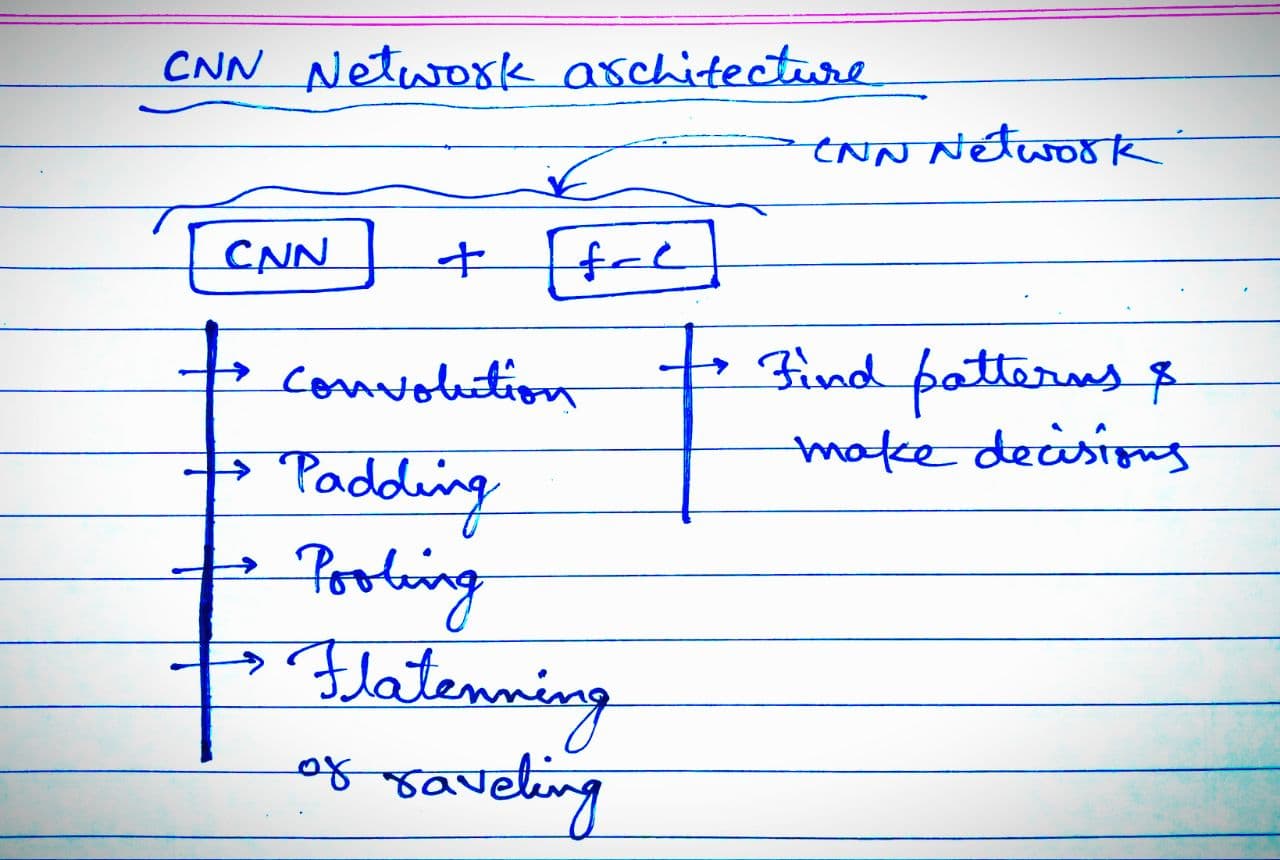 CNN Network architecture
CNN Network
CNN + f-c
→ Convolution
→ Padding
→ Pooling
→ Flatenning
or raveling
→ Find patterns &
make decisions